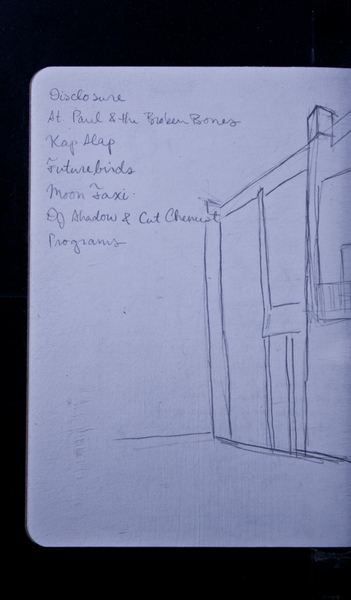 Disclosure
St. Paul & the Broken Bones
Kap Slap
Futurebirds
Moon Taxi
DJ Shadow & Cut Chemist
Programs